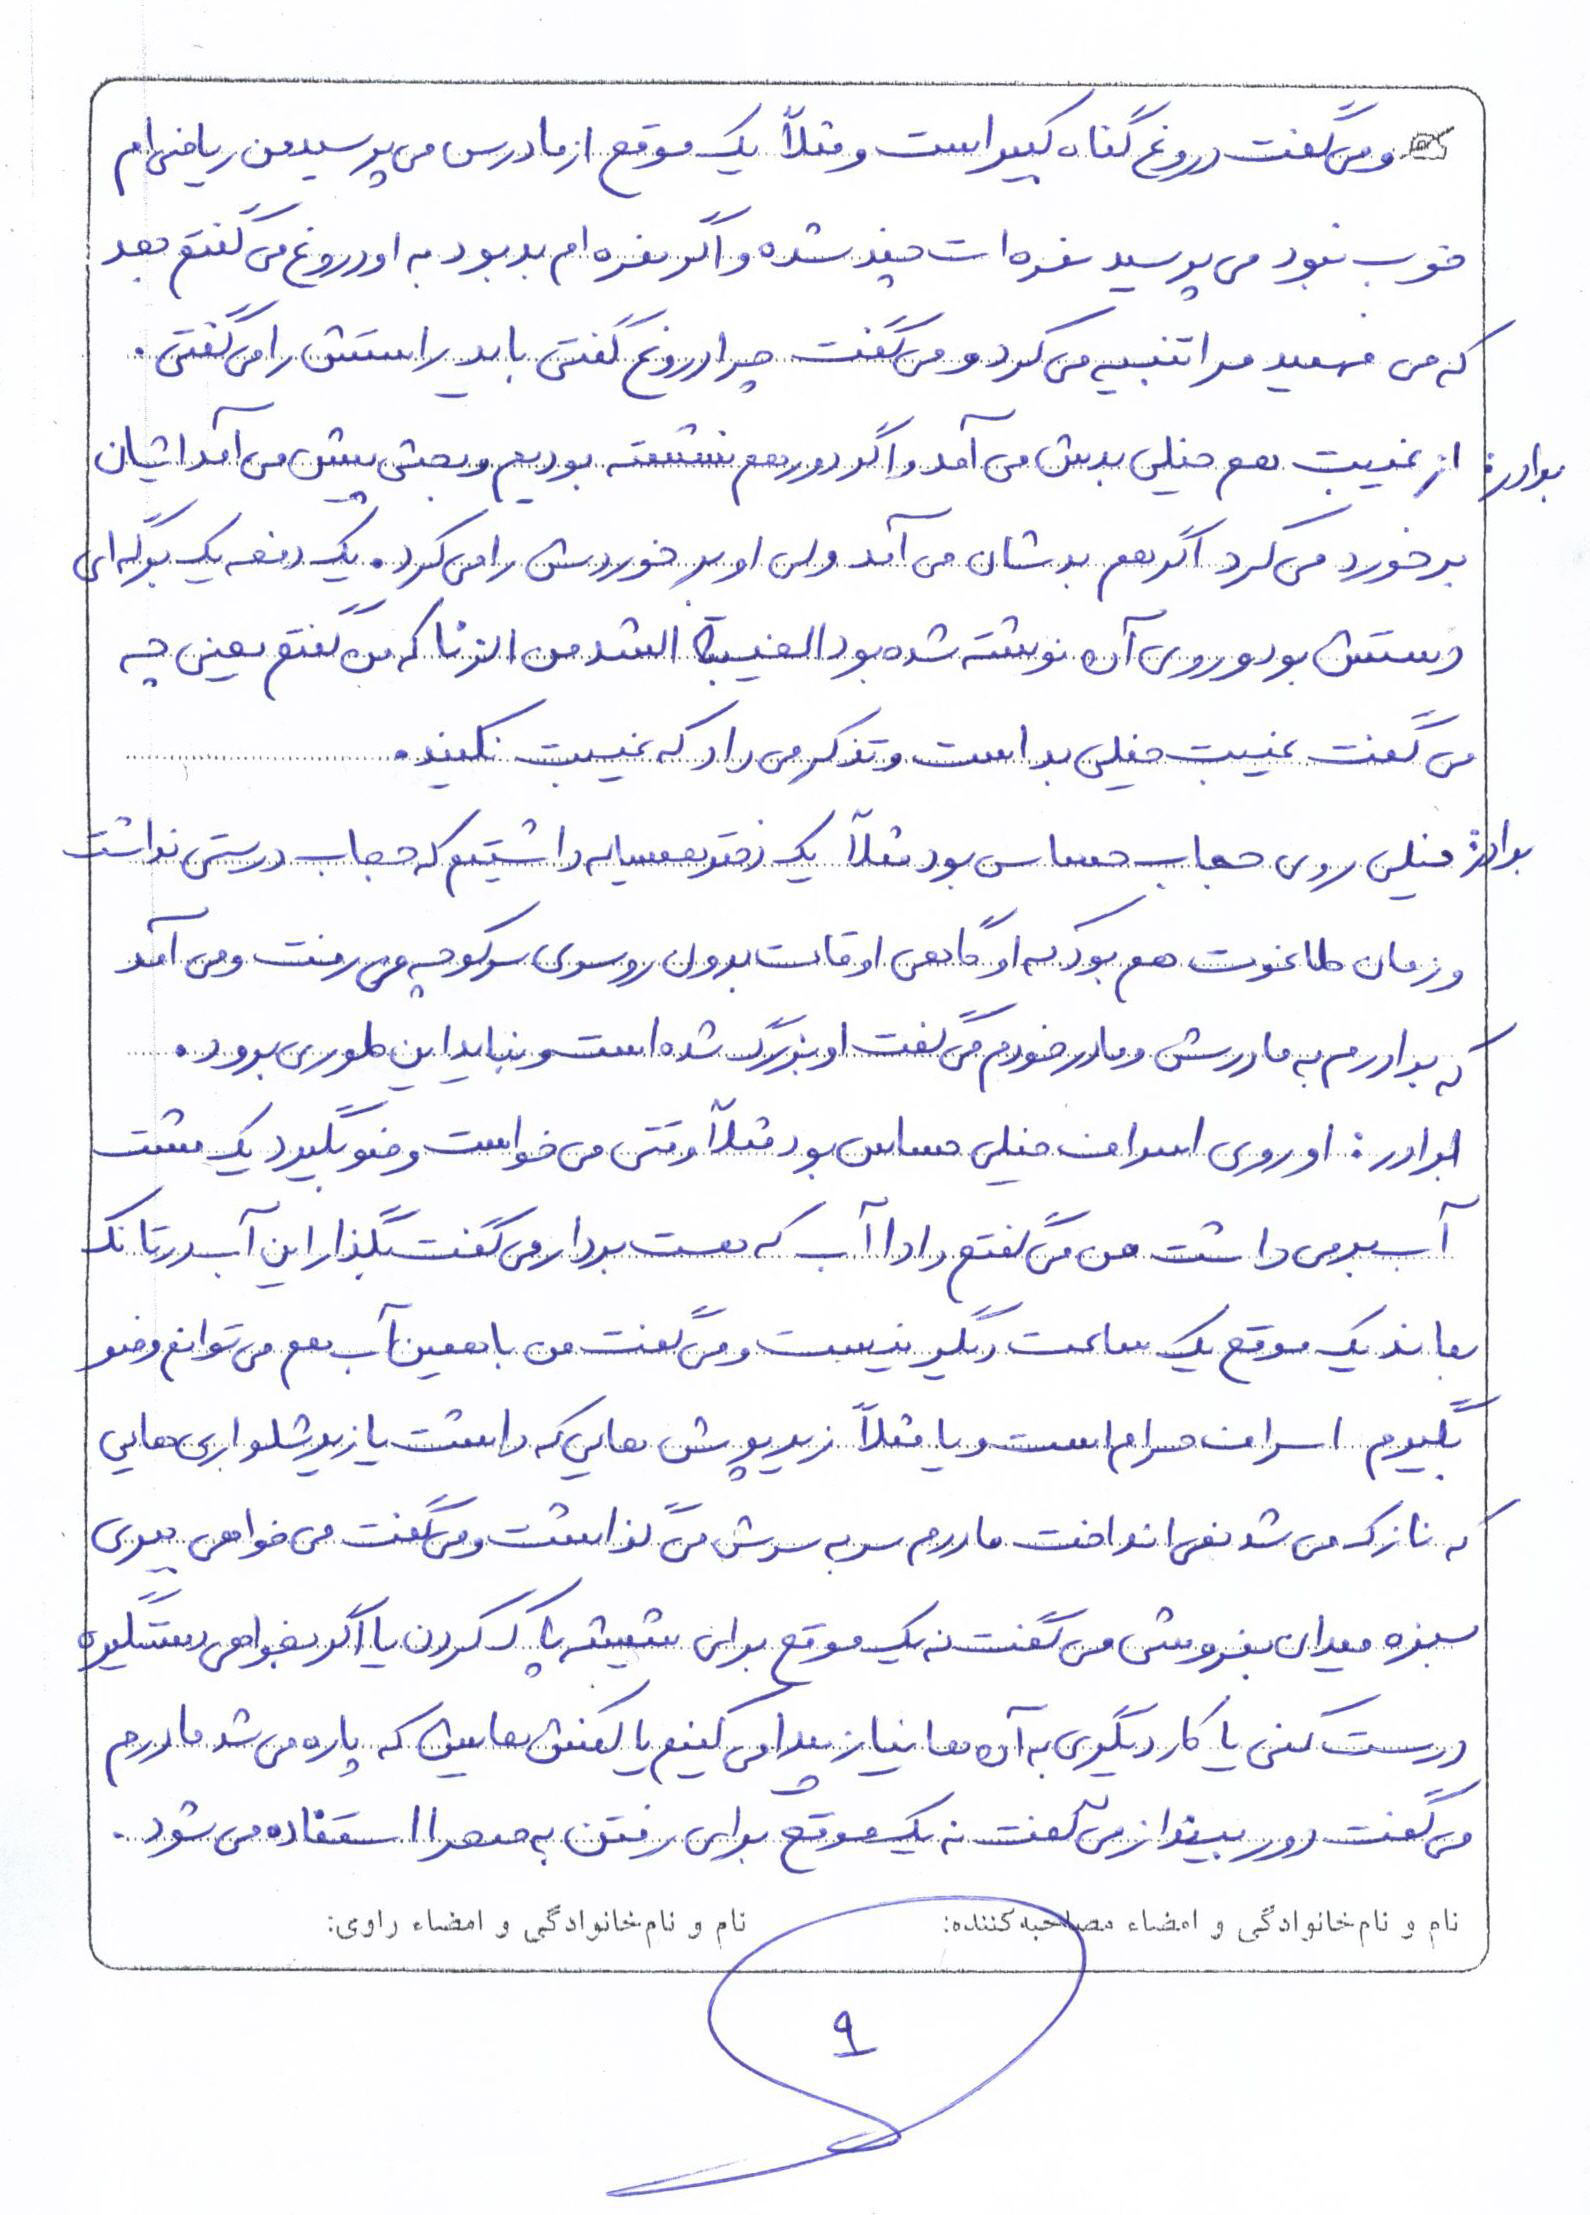 و می گفت دروغ گناه کبیر است و مثلاً یک موقع از ما درس می پرسید من ریاضی ام
خوب نبود می پرسید نمره ات چند شده و اگر نمره ام بد بود به او دروغ می گفتم بعد
که می فهمید مرا تنبیه می کرد و می گفت چرا دروغ گفتی باید راستش را می گفتی .
برادر: از غیبت هم خیلی بدش می آمد و اگر دور هم نشسته بودیم و بحثی پیش می آمد ایشان
برخورد می کرد اگر هم بدشان می آمد ولی او برخوردش را می کرد . یک دفعه یک برگه ای
دستش بود و روی آن نوشته شده بود الغیبة اشد من الزنا که من گفتم یعنی چه
می گفت غیبت خیلی بد است و تذکر می داد که غیبت نکنید .
برادر: خیلی روی حجاب حساس بود مثلاً یک دختر همسایه داشتیم که حجاب درستی نداشت
و زمان طاغوت هم بود که او گاهی اوقات بدون روسری سر کوچه می رفت و می آمد
که برادرم به مادرش و مادر خودم می گفت او بزرگ شده است و نباید این طوری برود .
برادر : او روی اسراف خیلی حساس بود مثلاً وقتی می خواست وضو بگیرد یک مشت
آب برمی داشت من می گفتم دادا آب که هست بردار می گفت بگذار این آب در تانک
بماند یک موقع یک ساعت دیگر نیست و می گفت من با همین آب هم می توانم وضو
بگیرم اسراف حرام است و یا مثلاً زیرپوش هایی که داشت یا زیرشلواری هایی
که نازک می شد نمی انداخت مادرم سر به سرش می گذاشت و می گفت می خواهی ببری
سبزه میدان بفروشی می گفت نه یک موقع برای شیشه پاک کردن یا اگر بخواهی دستگیره
درست کنی یا کار دیگری به آن ها نیاز پیدا می کنیم یا کفش هایش که پاره می شد مادرم
می گفت دور بینداز می گفت نه یک موقع برای رفتن به صحرا استفاده می شود .
نام و نام خانوادگی و امضاء مصاحبه کننده: نام و نام خانوادگی و امضاء راوی:
۹